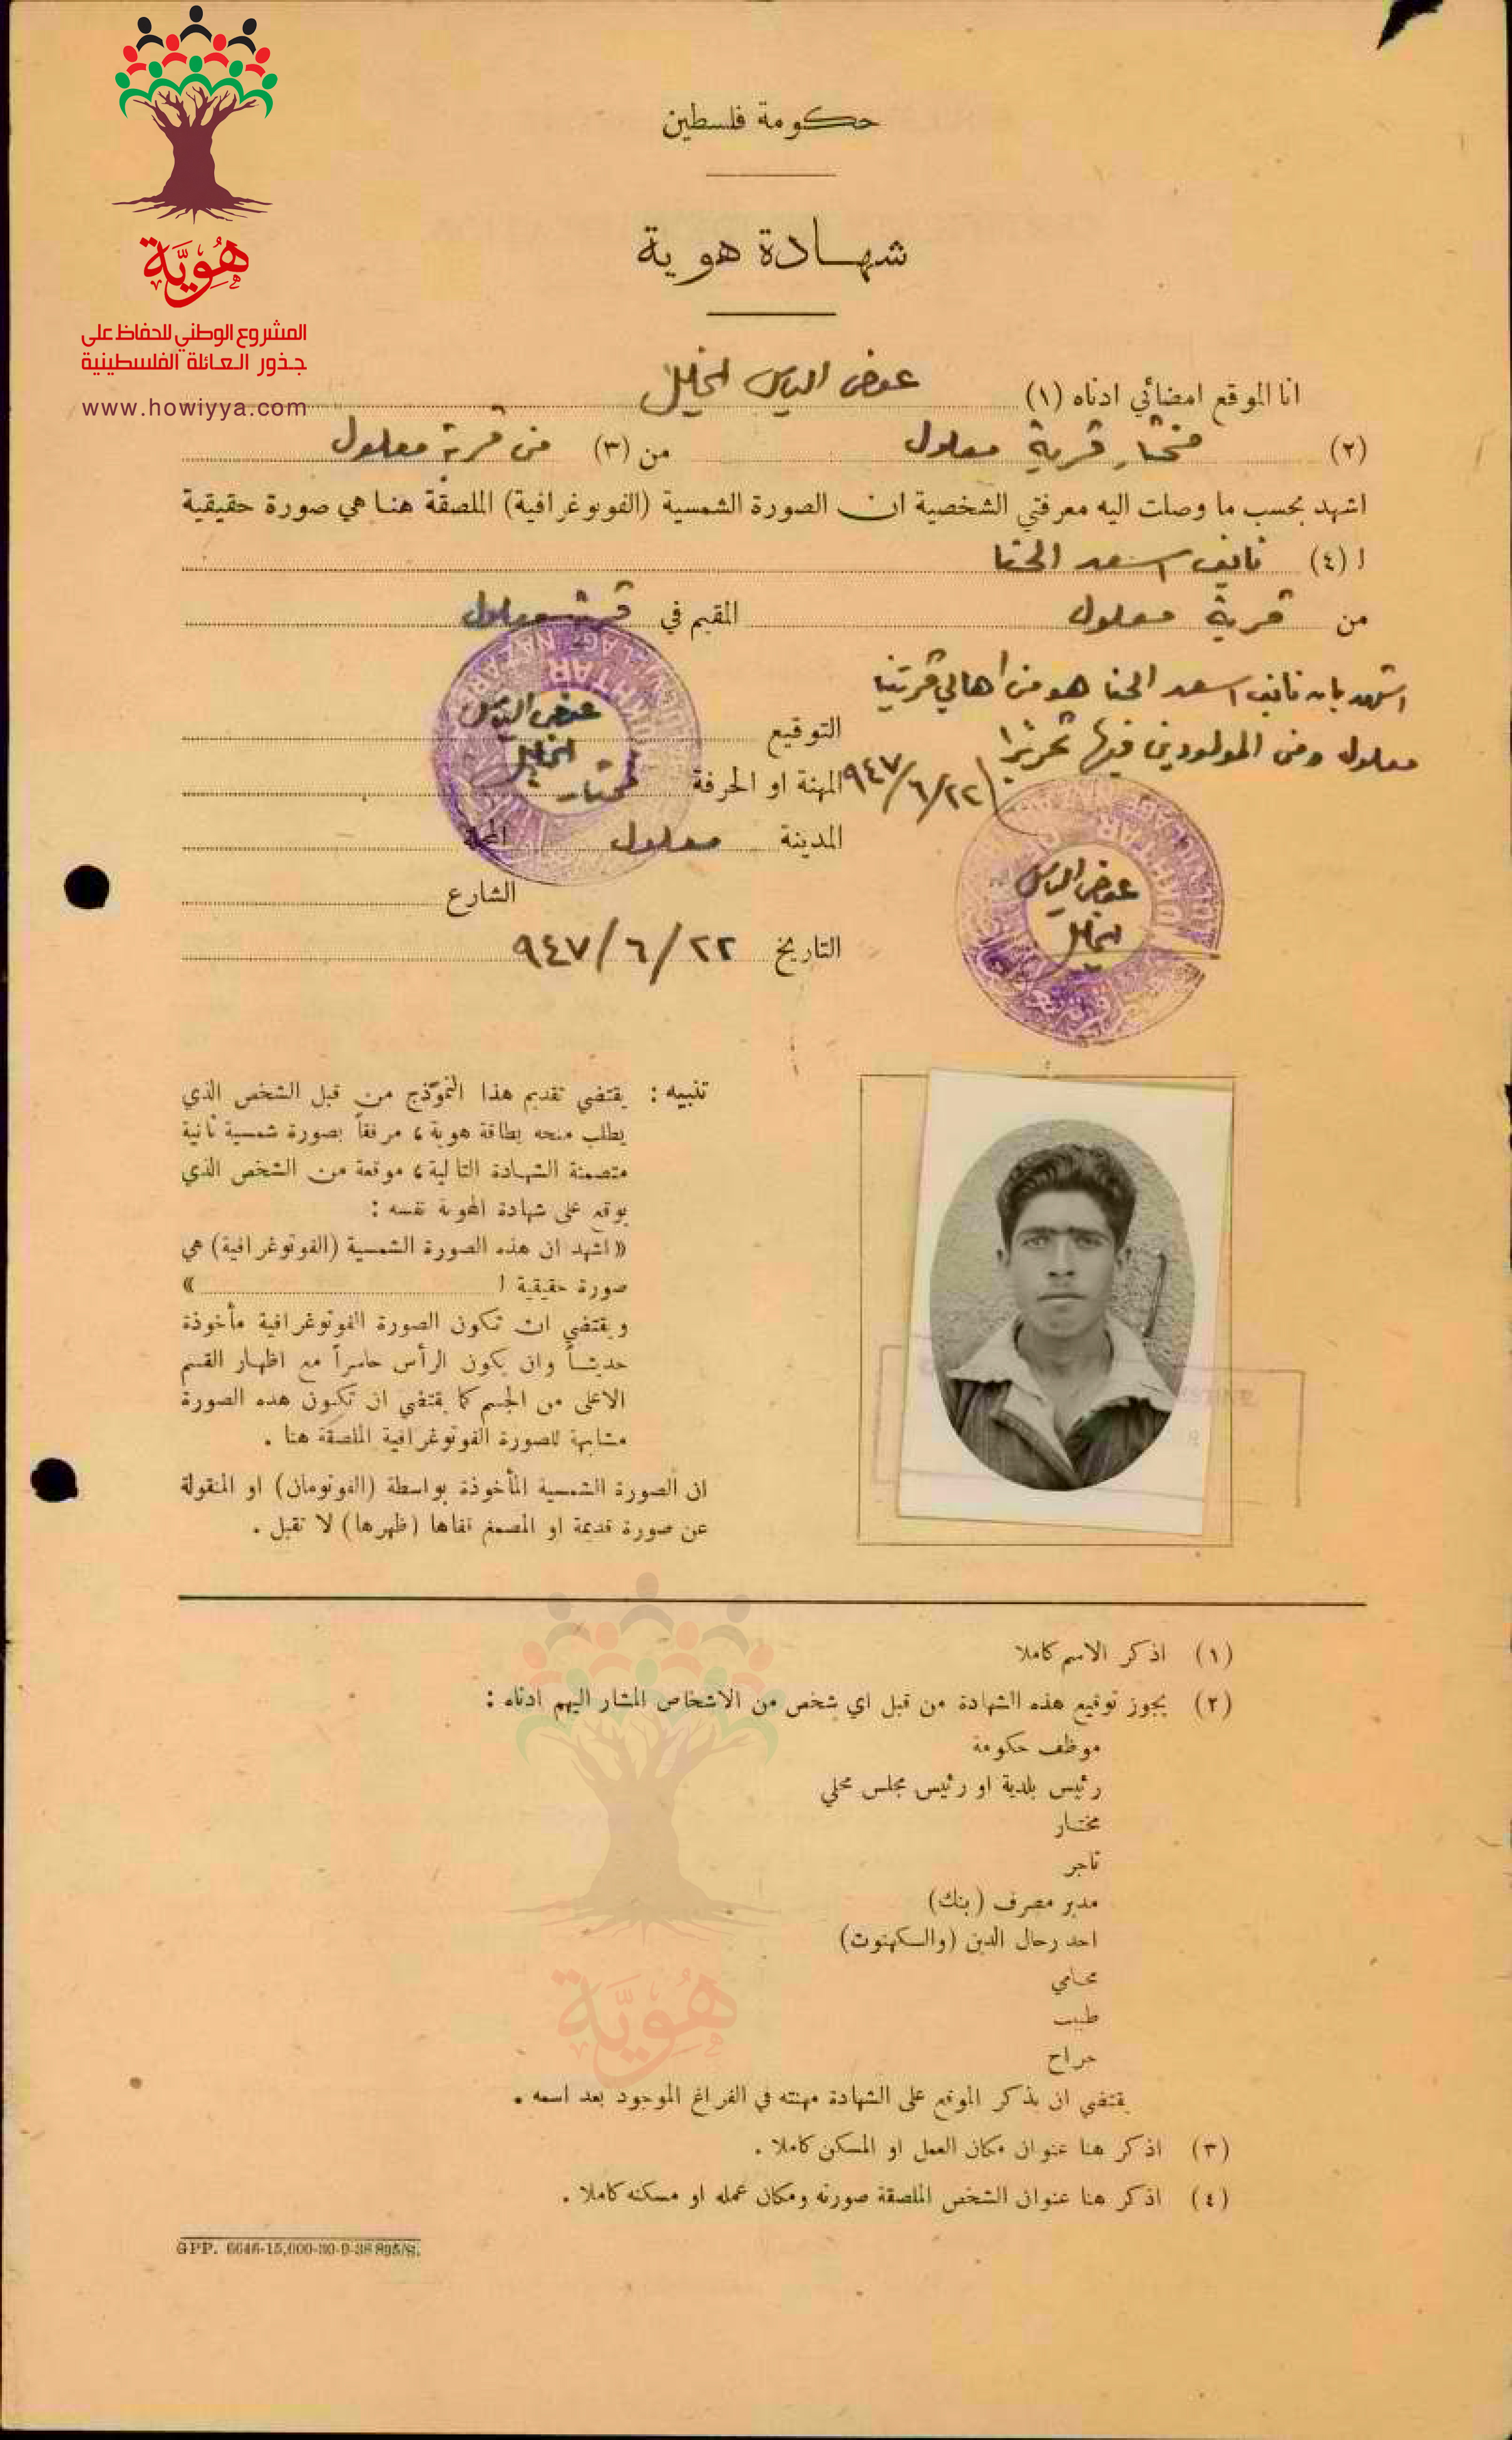 هوية
المشروع الوطني للحفاظ على
جذور العائلة الفلسطينية
www.howiyya.com
حكومة فلسطين
شهادة هوية
انا الموقع امضائي ادناه (١) عوض الياس الخليل
(٢) مختار قرية معلول من (٣) من قرية معلول
اشهد بحسب ما وصلت اليه معرفتي الشخصية ان الصورة الشمسية (الفوتوغرافية) الملصقة هنا هي صورة حقيقية
ا (٤) نايف اسعد الحنا
من قرية معلول المقيم في قرية معلول
اشهد بان نايف اسعد الحنا هو من اهالي قريتنا
معلول ومن المولودين فيها تحريرا
٩٤٧/٦/٢٢
التوقيع عوض الياس
الخليل
المهنة او الحرفة مختار
المدينة معلول المحلة
الشارع
التاريخ ٩٤٧/٦/٢٢
عوض الياس
الخليل
MUKHTAR
تنبيه : يقتضي تقديم هذا النموذج من قبل الشخص الذي
يطلب منحه بطاقة هوية ، مرفقاً بصورة شمسية ثانية
متضمنة الشهادة التالية ، موقعة من الشخص الذي
يوقع على شهادة الهوية نفسه :
« اشهد ان هذه الصورة الشمسية (الفوتوغرافية) هي
صورة حقيقية ا »
ويقتضي ان تكون الصورة الفوتوغرافية مأخوذة
حديثاً وان يكون الرأس حاسراً مع اظهار القسم
الاعلى من الجسم كما يقتضي ان تكون هذه الصورة
مشابهة للصورة الفوتوغرافية الملصقة هنا .
ان الصورة الشمسية المأخوذة بواسطة (الفوتومان) او المنقولة
عن صورة قديمة او المصمغ قفاها (ظهرها) لا تقبل .
(١) اذكر الاسم كاملا
(٢) يجوز توقيع هذه الشهادة من قبل اي شخص من الاشخاص المشار اليهم ادناه :
موظف حكومة
رئيس بلدية او رئيس مجلس محلي
مختار
تاجر
مدير مصرف (بنك)
احد رجال الدين (والكهنوت)
محامي
طبيب
جراح
يقتضي ان يذكر الموقع على الشهادة مهنته في الفراغ الموجود بعد اسمه .
(٣) اذكر هنا عنوان مكان العمل او المسكن كاملا .
(٤) اذكر هنا عنوان الشخص الملصقة صورته ومكان عمله او مسكنه كاملا .
هوية
GPP. 6646-15,000-30-9-38 895/S.